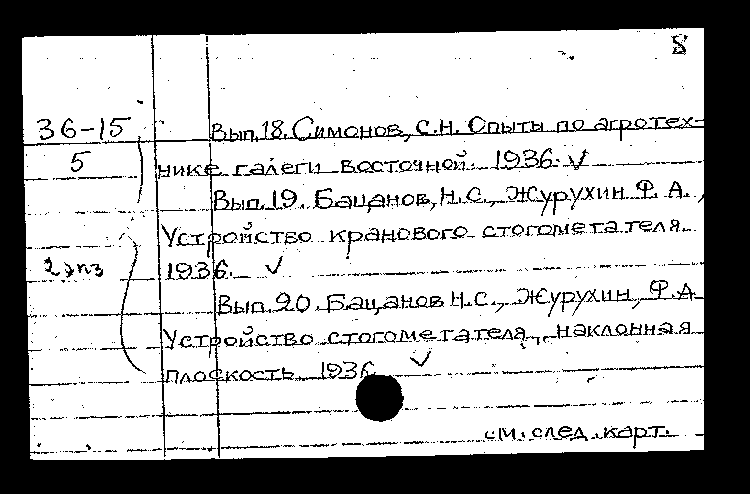 8
36-15 Вып. 18. Симонов, С.Н. Опыты по агротех-
5 нике галеги восточной. 1936. ✓
Вып. 19. Бацанов, Н.С., Журухин Ф.А.,
Устройство кранового стогометателя.
2 экз 1936. ✓
Вып. 20. Бацанов Н.С., Журухин, Ф.А.
Устройство стогометателя, наклонная
плоскость. 1936 ✓
см. след. карт.